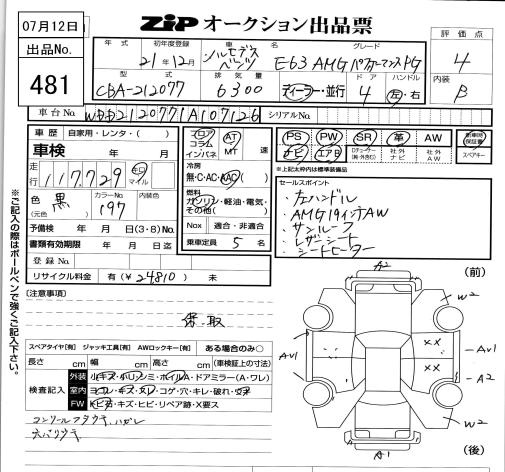 07月12日
出品No.
481
ZIP オークション出品票
評価点
4
内装
B
年式 初年度登録 21年12月
車名 メルセデスベンツ
グレード E63 AMG パフォーマンスPG
CBA-212077
排気量 6300
ディーラー・並行
ドア 4
ハンドル 左・右
車台No. WDD2120771A107126
シリアルNo.
車歴 自家用・レンタ・( )
車検 年 月
走行 117,729 キロ マイル
色 黒 (元色)
カラーNo. 197
内装色
予備検 年 月 日(3・6)Mo
書類有効期限 年 月 日迄
登録No.
リサイクル料金 有(¥24810) 未
フロア コラム インパネ
AT MT 速
冷房
無・C・AC・AAC( )
燃料
ガソリン・軽油・電気・その他( )
Nox 適合・非適合
乗車定員 5 名
PS PW SR 革 AW 新車時保証書
ナビ エアB Dチューナー 社外ナビ 社外AW スペアキー
*上記太枠内は標準装備品
セールスポイント
・左ハンドル
・AMG19インチAW
・サンルーフ
・レザーシート
・シートヒーター
(注意事項)
保、取
スペアタイヤ[有] ジャッキ工具[有] AWロックキー[有] ある場合のみ○
長さ cm 幅 cm 高さ cm (車検証上の寸法)
検査記入
外装 小キズ・小凹・シミ・ホイル A・ドアミラー(A・ワレ)
室内 ヨゴレ・キズ・スレ・コゲ・穴・キレ・破れ・欠
FW トビ石・キズ・ヒビ・リペア跡・X要ス
コンソールフタウキ、ハガレ
(前)
A2
W2
Av1
××
Av1
××
A2
W2
A1
(後)
ご記入の際はボールペンで強くご記入下さい。